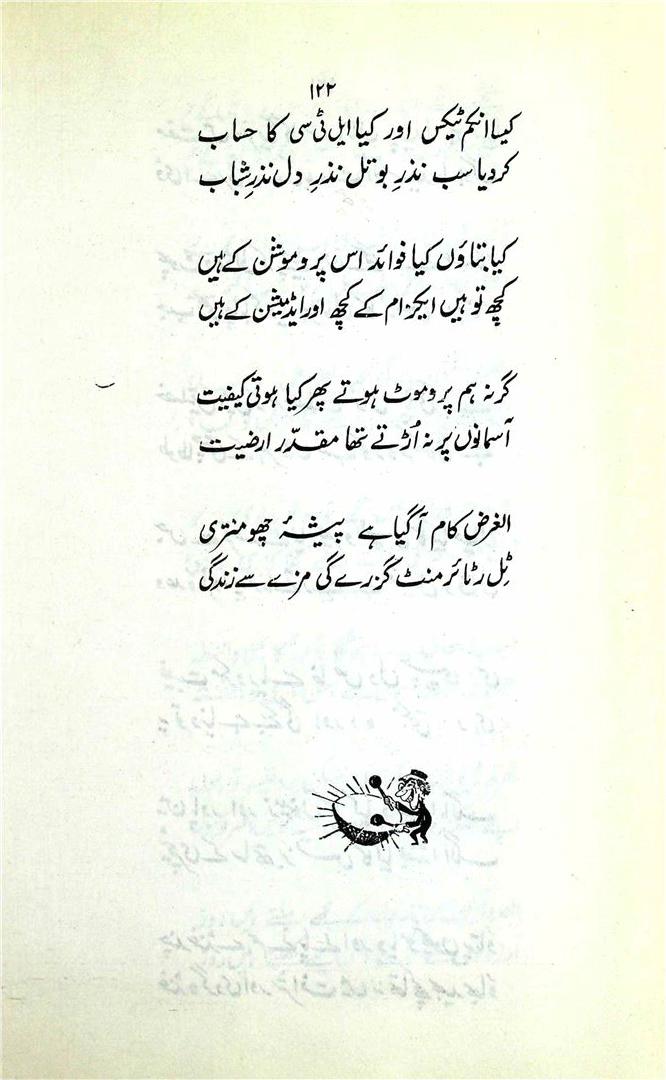 ۱۲۲
کیا انکم ٹیکس اور کیا ایل ٹی سی کا حساب
کر دیا سب نذرِ بوتل نذرِ دل نذرِ شباب
کیا بتاؤں کیا فوائد اس پروموشن کے ہیں
کچھ تو ہیں ایکزام کے کچھ اور ایڈمیشن کے ہیں
گر نہ ہم پروموٹ ہوتے پھر کیا ہوتی کیفیت
آسمانوں پر نہ اُڑتے تھا مقدّر ارضیت
الغرض کام آگیا ہے پیشۂ چھومنتری
ٹِل رٹائرمنٹ گزرے گی مزے سے زندگی